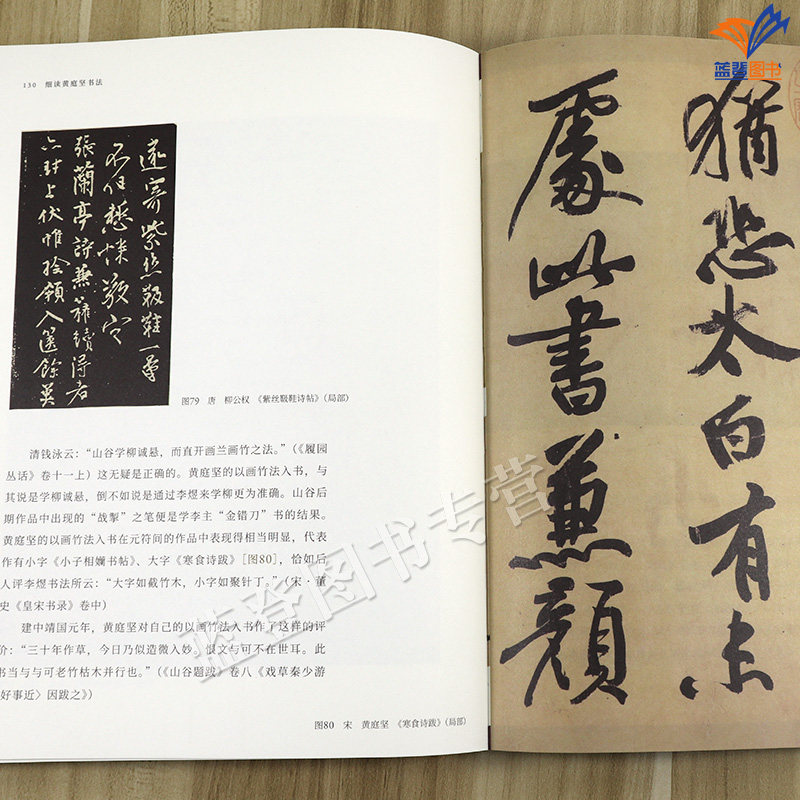 130 细读黄庭坚书法
遠寄紫丝靸鞋一量
不任慙悚敬空
張蘭亭詩兼獲續得者
六封上伏惟捡領入篋餘冀
图79 唐 柳公权 《紫丝靸鞋诗帖》(局部)
清钱泳云：“山谷学柳诚悬，而直开画兰画竹之法。”（《履园
丛话》卷十一上）这无疑是正确的。黄庭坚的以画竹法入书，与
其说是学柳诚悬，倒不如说是通过李煜来学柳更为准确。山谷后
期作品中出现的“战掣”之笔便是学李主“金错刀”书的结果。
黄庭坚的以画竹法入书在元符间的作品中表现得相当明显，代表
作有小字《小子相孏书帖》、大字《寒食诗跋》[图80]，恰如后
人评李煜书法所云：“大字如截竹木，小字如聚针丁。”（宋·董
史《皇宋书录》卷中）
建中靖国元年，黄庭坚对自己的以画竹法入书作了这样的评
价：“三十年作草，今日乃似造微入妙，恨文与可不在世耳。此
书当与与可老竹枯木并行也。”（《山谷题跋》卷八《戏草秦少游
好事近〉因跋之》）
图80 宋 黄庭坚 《寒食诗跋》(局部)
猶恐太白有未
處此書兼顏
蓝登图书
蓝登图书专营